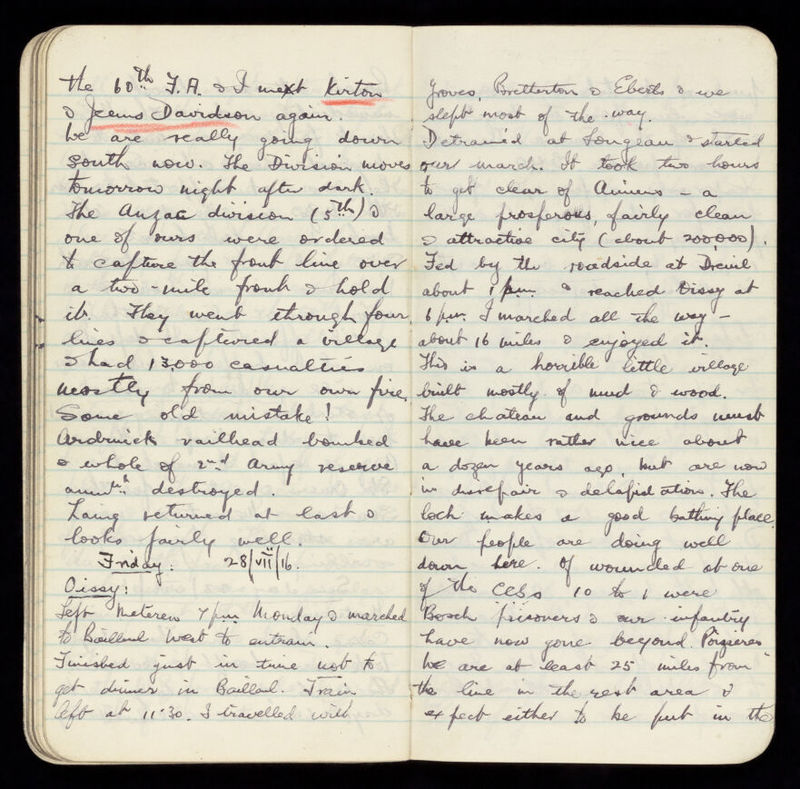 the 60th F.A. & I met Kirton
& Jeems Davidson again.
We are really going down
South now. The Division moves
tomorrow night after dark.
The Anzac division (5th) &
one of ours were ordered
to capture the front line over
a two-mile front & hold
it. They went through four
lines & captured a village
& had 13,000 casualties
mostly from our own fire.
Some old mistake!
railhead bombed
& whole of 2nd Army reserve
ammtn destroyed.
Laing returned at last &
looks fairly well.
Friday. 28/VII/16.
Oissy:
Left Meteren 7 pm Monday & marched
to Bailleul West to entrain.
Finished just in time not to
get dinner in Bailleul. Train
left at 11.30. I travelled with
Groves, Bretherton & Eberts & we
slept most of the way.
Detrained at Longeau & started
our march. It took two hours
to get clear of Amiens – a
large prosperous, fairly clean
& attractive city (about 200,000).
Fed by the roadside at Dreuil
about 1 pm & reached Oissy at
6 pm. I marched all the way –
about 16 miles & enjoyed it.
This is a horrible little village
built mostly of mud & wood.
The chateau and grounds must
have been rather nice about
a dozen years ago, but are now
in disrepair & delapidation. The
loch makes a good bathing place.
Our people are doing well
down here. Of wounded at one
of the CCSs 10 to 1 were
Bosch prisoners & our infantry
have now gone beyond Pozieres.
We are at least 25 miles from
the line in the rest area &
expect either to be put in the